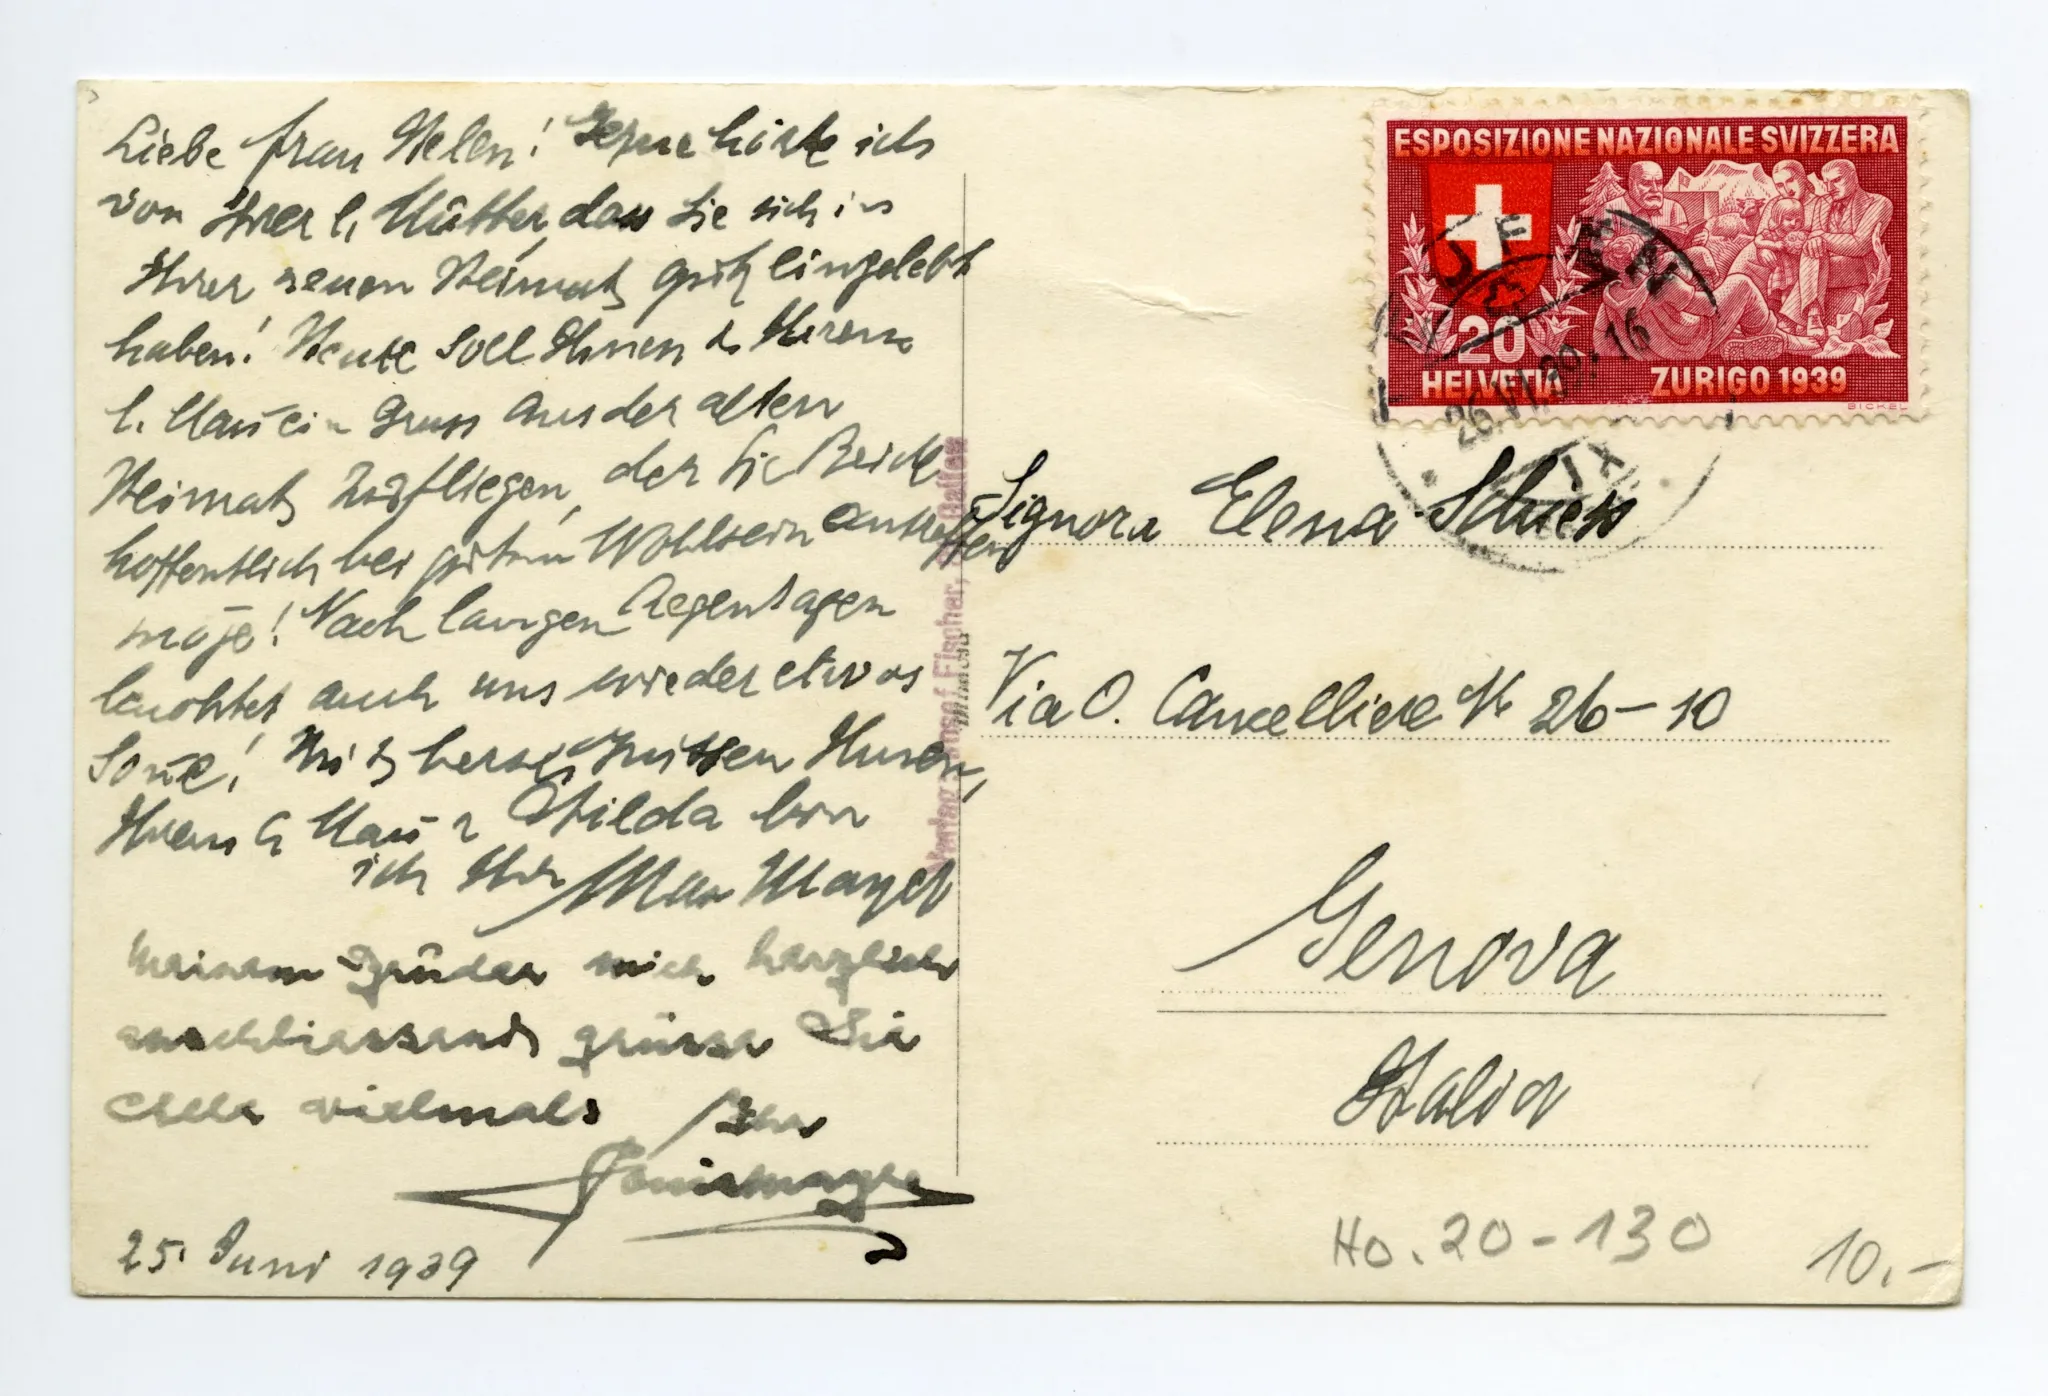 Liebe Frau Helen! Gerne hörte ich
von Ihrer l. Mutter, dass Sie sich in
Ihrer neuen Heimat gut eingelebt
haben! Heute soll Ihnen & Ihrem
l. Mañ ein Gruss aus der alten
Heimat zufliegen, der Sie Beide
hoffentlich bei gutem Wohlsein antreffen
möge! Nach langen Regentagen
leuchtet auch uns wieder etwas
Soñe! Mit herzl. Grüssen Ihnen,
Ihrem l. Mañ & Hilda bin
ich Ihr Max Mayer
Meinem Bruder mich herzlich
anschliessend grüsse Sie
alle vielmals Ihr
25. Juni 1939
ESPOSIZIONE NAZIONALE SVIZZERA
20
HELVETIA ZURIGO 1939
BICKEL
TEUFEN
26.VI.39.-16
Signora Elena Schiess
Via O. Cancelliere No 26-10
Genova
Italia
Ho. 20-130
10.-
Fischer, St. Gallen